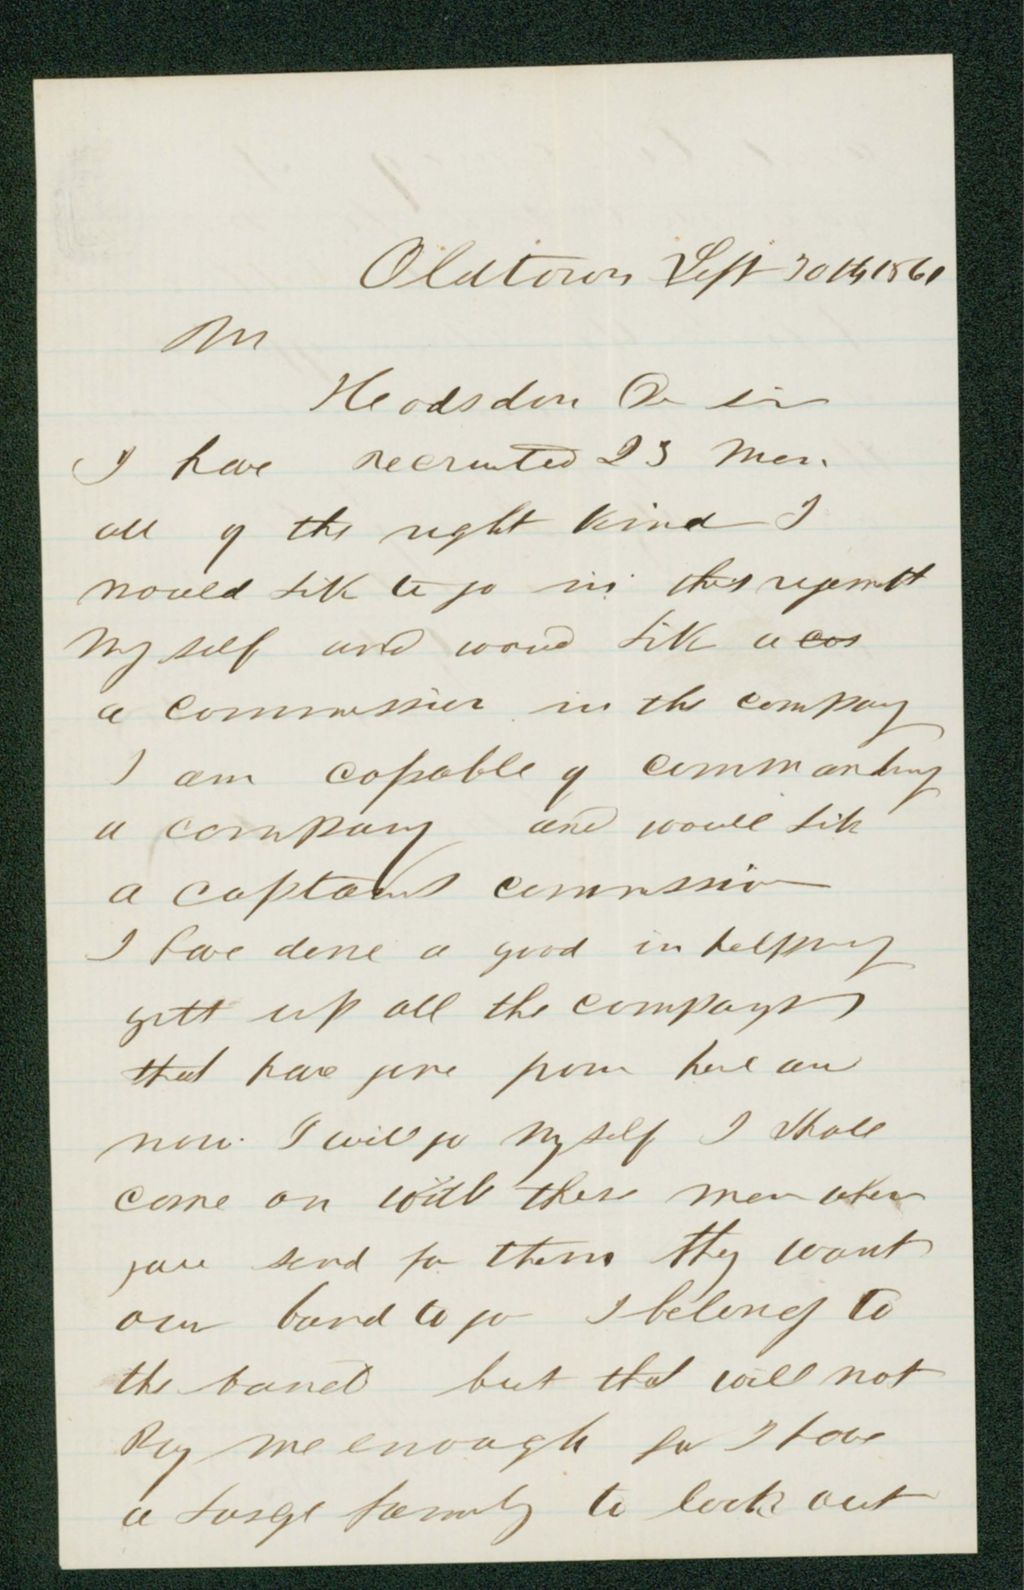 Oldtown Sept 30th 1861
Mr
Headsdon Dr sir
I have recruited 23 Men
all of the right kind I
would like to go in this
my self and woud like a cos
a commission in the company
I am capable of commanding
a company and would like
a captains commission
I have done a good in helpping
gett up all the companys
that have gone from here an
now I will go my self I shall
come on with these men when
you send for them they want
our band to go I belong to
the band but that will not
Pay me enough for I have
a large family to look out